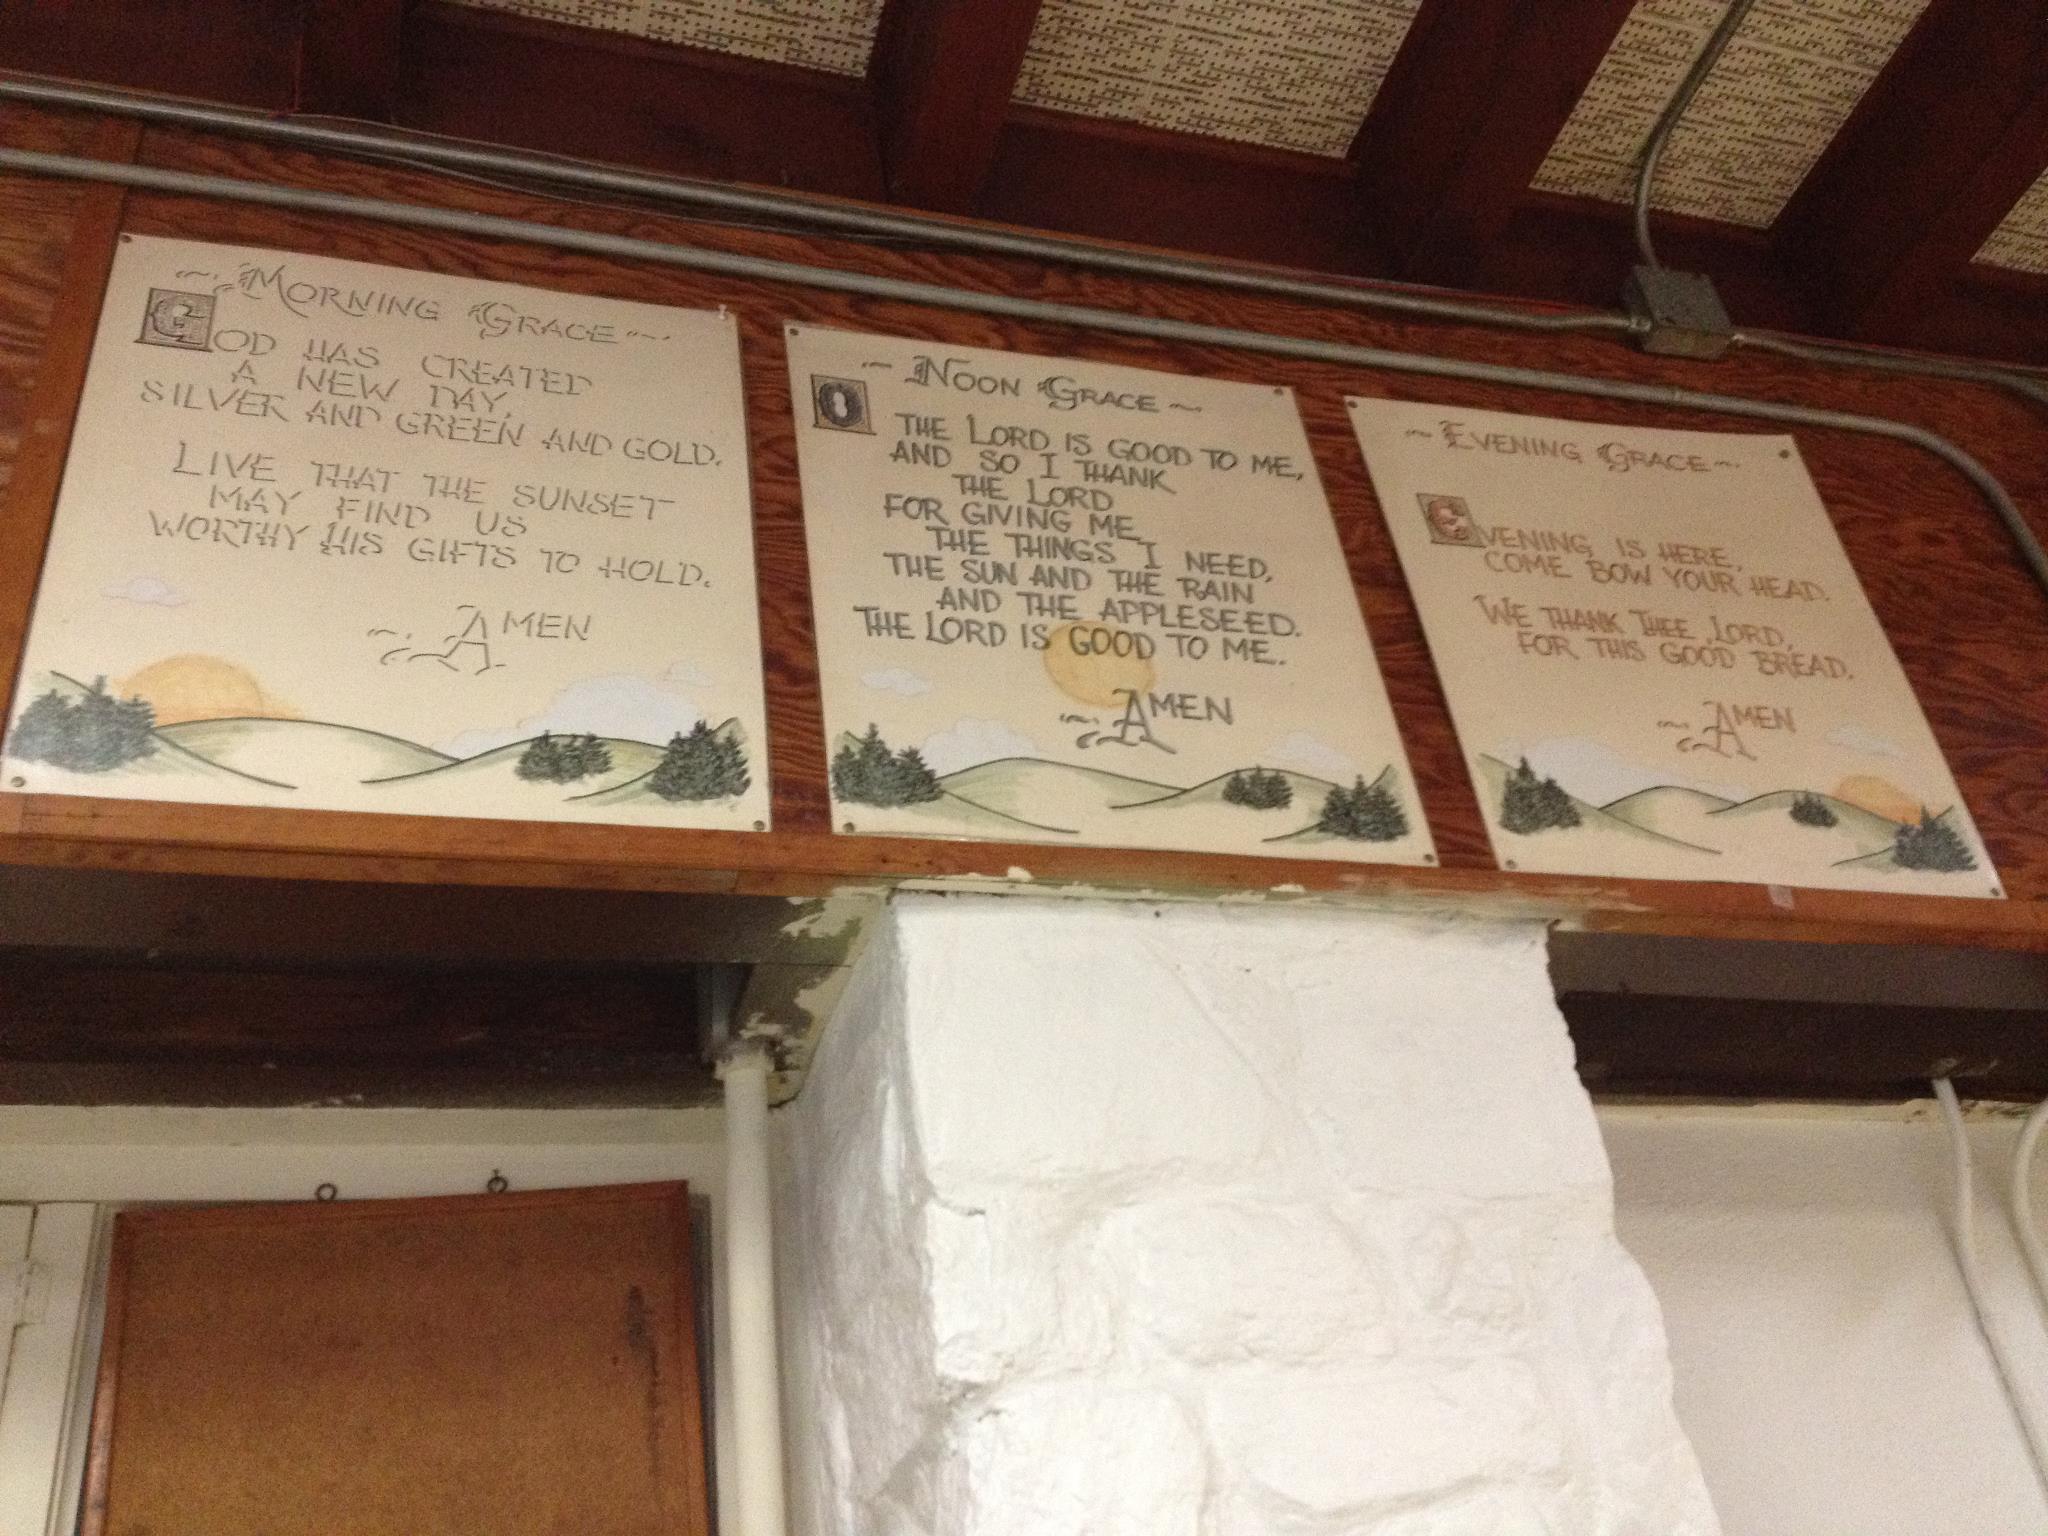 ~ Morning Grace ~
God has created
a new day,
silver and green and gold.
Live that the sunset
may find us
worthy his gifts to hold.
~ Amen
~ Noon Grace ~
O the Lord is good to me,
and so I thank
the Lord
for giving me
the things I need,
the sun and the rain
and the appleseed.
The Lord is good to me.
~ Amen
~ Evening Grace ~
Evening is here,
come bow your head.
We thank thee, Lord,
for this good bread.
~ Amen